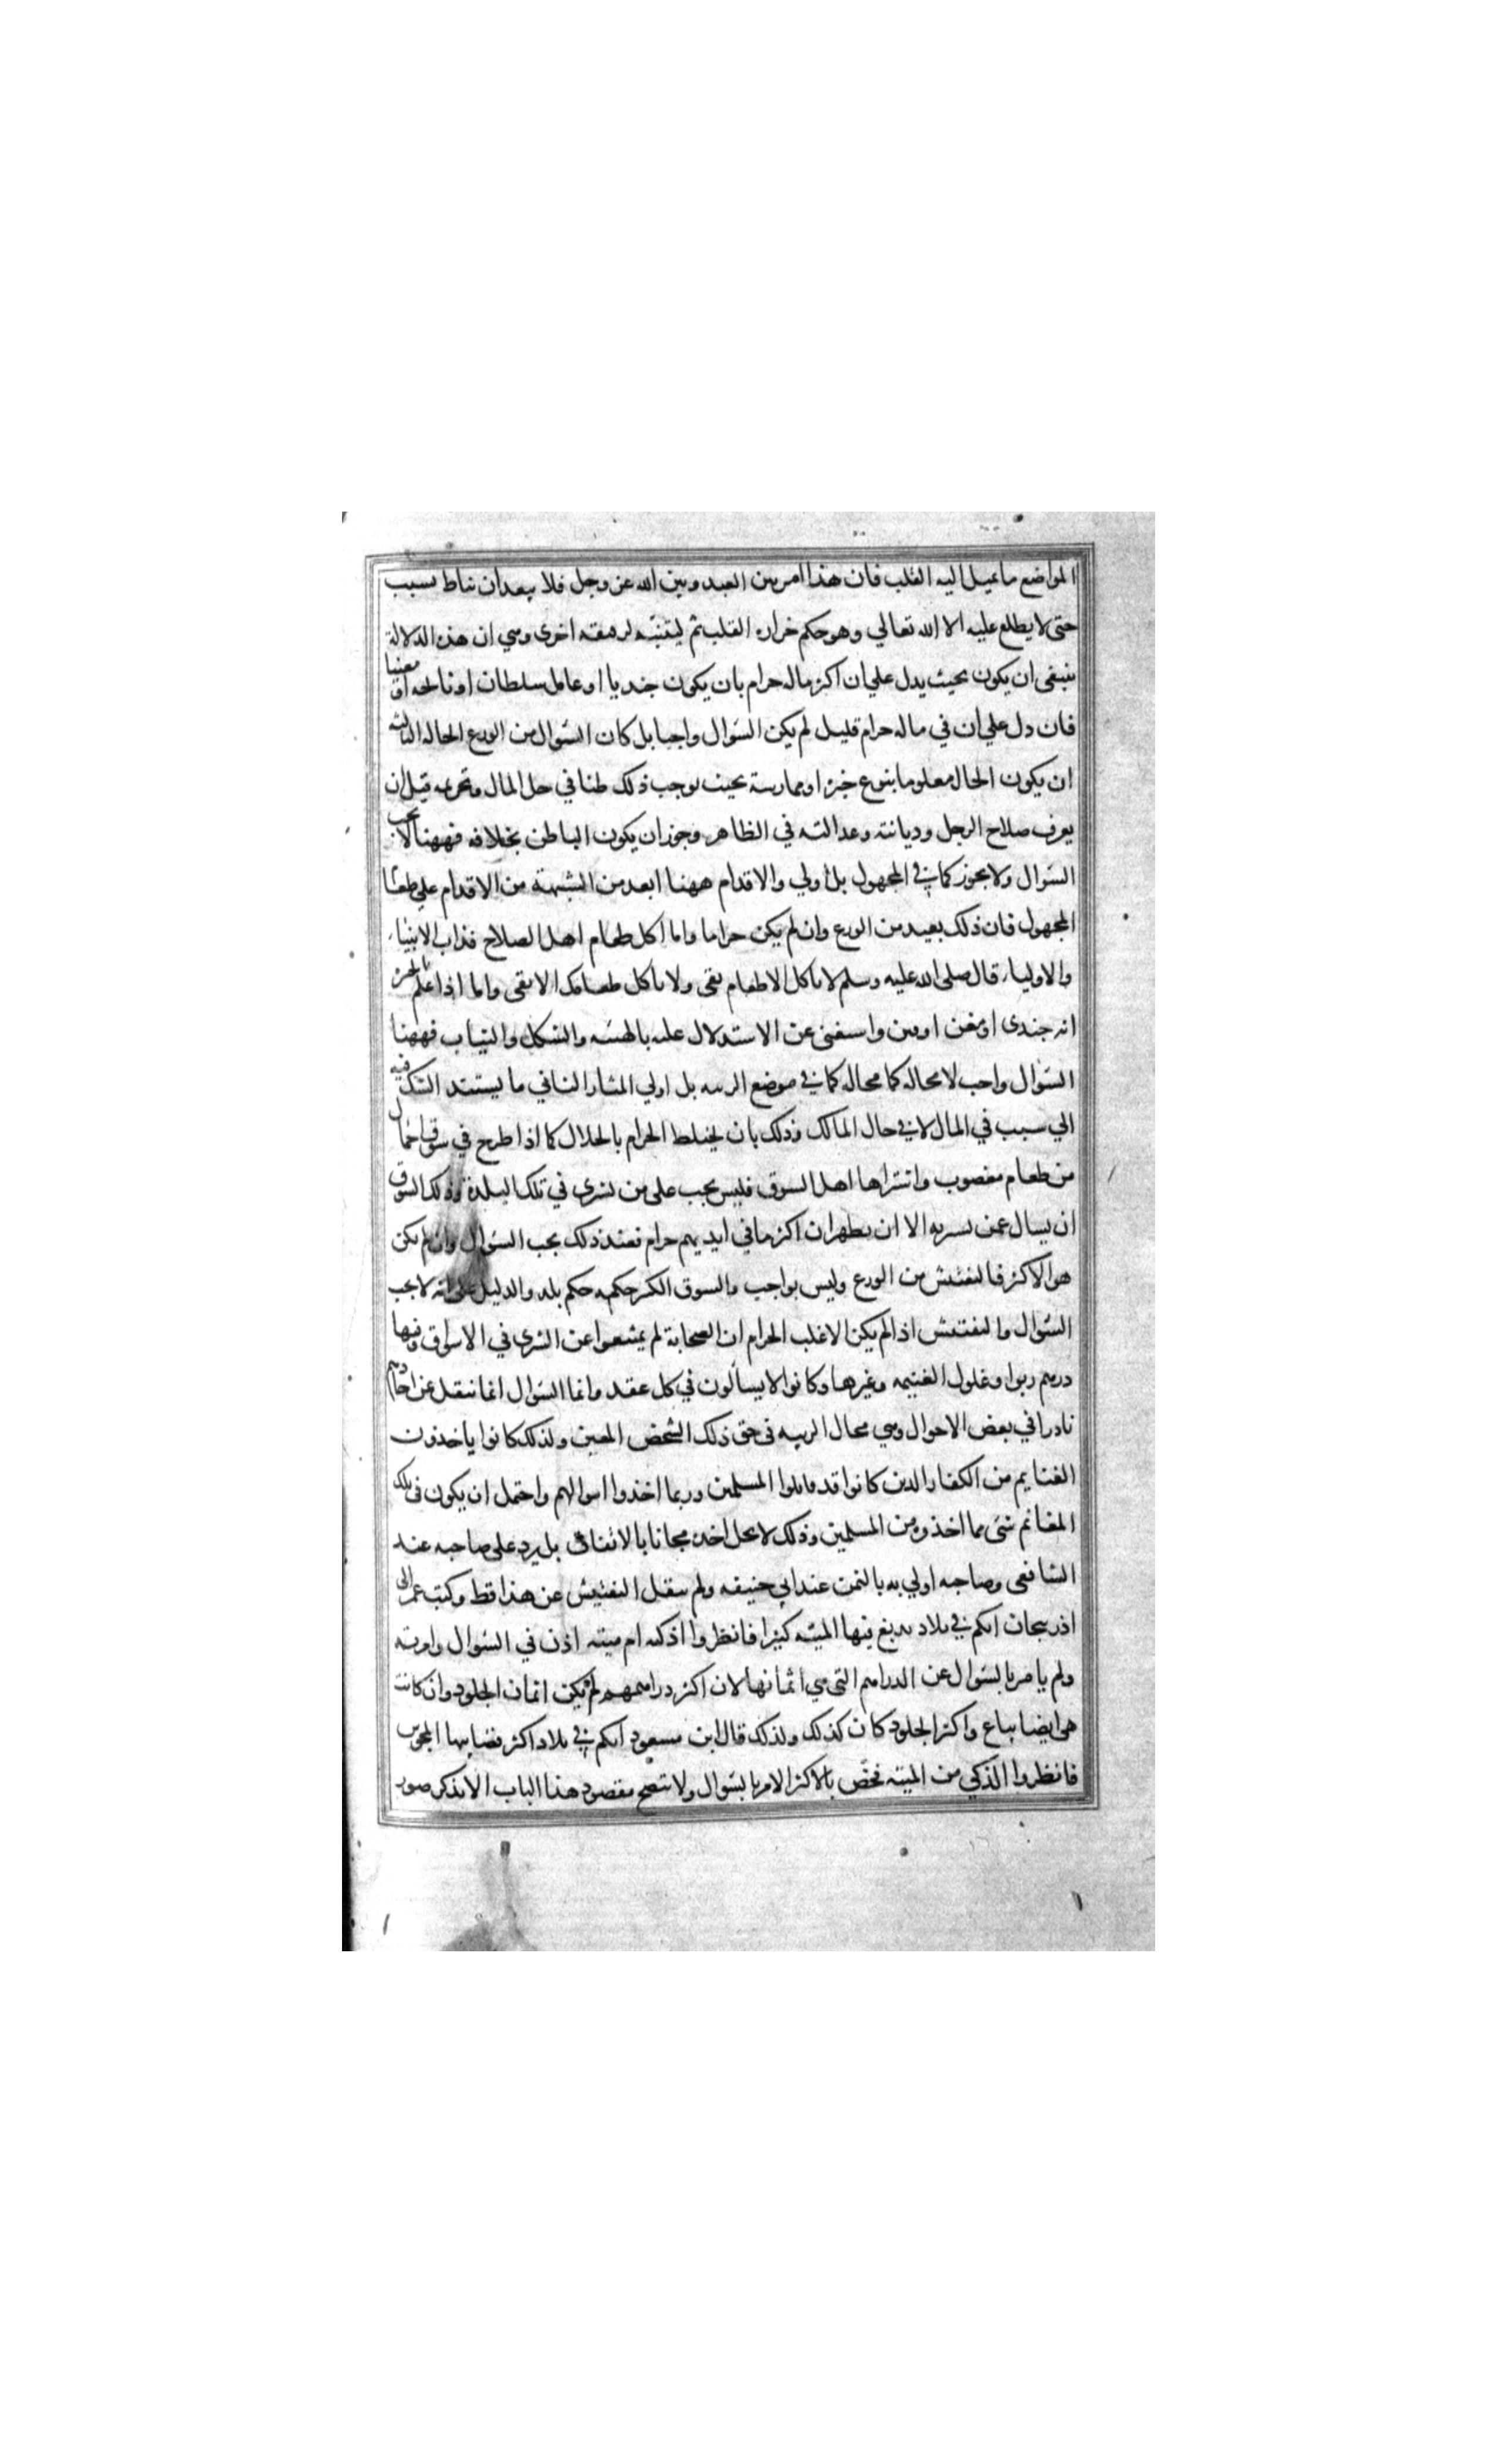 المواضع ما يميل اليه القلب فان هذا امر بين العبد وبين الله عز وجل فلا يبعد ان يناط بسبب
حتى لا يطلع عليه الا الله تعالي وهو حكم حزازة القلب ثم ليتنبه لدقيقه اخرى وهي ان هذه الدلالة
ينبغى ان يكون بحيث يدل علي ان اكثر ماله حرام بان يكون جنديا او عامل سلطان او نائحه او مغنيا
فان دل علي ان في ماله حرام قليل لم يكن السؤال واجبا بل كان السؤال من الورع الحاله الثالثه
ان يكون الحال معلوما بنوع خبره او ممارسة بحيث يوجب ذلك ظنا في حل المال وتحريمه قبل ان
يعرف صلاح الرجل وديانته وعدالته في الظاهر وجوز ان يكون الباطن بخلافه فههنا لا يجب
السؤال ولا يجوز كما في المجهول بل أولي والاقدام ههنا ابعد من الشبهة من الاقدام علي طعام
المجهول فان ذلك بعيد من الورع وان لم يكن حراما واما اكل طعام اهل الصلاح فداب الانبياء
والاولياء قال صلى الله عليه وسلم لا ياكل الا طعام تقى ولا ياكل طعامك الا تقى واما اذا علم بالخبرة
انه جندى او مغن او مرب واستغنى عن الاستدلال عليه بالهيئه والشكل والثياب فههنا
السؤال واجب لا محاله كما محاله كما في موضع الريبه بل اولي المثار الثاني ما يستند الشك فيه
الي سبب في المال لا في حال المالك وذلك بان يختلط الحرام بالحلال كما اذا طرح في سوق احمال
من طعام مغصوب واشتراها اهل السوق فليس يجب على من يشرى في تلك البلدة وذلك السوق
ان يسال عمن يشريه الا ان يظهر ان اكثر ما في ايديهم حرام فعند ذلك يجب السؤال وان لم يكن
هو الاكثر فالتفتيش من الورع وليس بواجب والسوق الكبير حكمه حكم بلد والدليل على انه لا يجب
السؤال والتفتيش اذا لم يكن الاغلب الحرام ان الصحابة لم يمتنعوا عن الشرى في الاسواق وفيها
درهم ربوا وغلول الغنيمه وغيرها وكانوا لا يسألون في كل عقد وانما السؤال انما نقل عن احادهم
نادرا في بعض الاحوال وهي محال الريبه فى حق ذلك الشخص المعين ولذلك كانوا ياخذون
الغنايم من الكفار الذين كانوا قد قاتلوا المسلمين وربما اخذوا اموالهم واحتمل ان يكون فى تلك
المغانم شئ مما اخذوه من المسلمين وذلك لا يحل اخذه مجانا بالاتفاق بل يرد على صاحبه عند
الشافعى وصاحبه اولي به بالثمن عند ابي حنيفه ولم ينقل التفتيش عن هذا قط وكتب عمر الى
اذربيجان انكم في بلاد يدبغ فيها الميته كثيرا فانظروا اذكيه ام ميته اذن في السؤال وامر به
ولم يامر بالسؤال عن الدراهم التى هي اثمانها لان اكثر دراهمهم لم يكن اثمان الجلود وان كانت
هى ايضا يباع واكثر الجلود كان كذلك ولذلك قال ابن مسعود انكم في بلاد اكثر قصابيها المجوس
فانظروا الذكي من الميته فخص بالاكثر الامر بالسؤال ولا يتضح مقصود هذا الباب الا بذكر صور